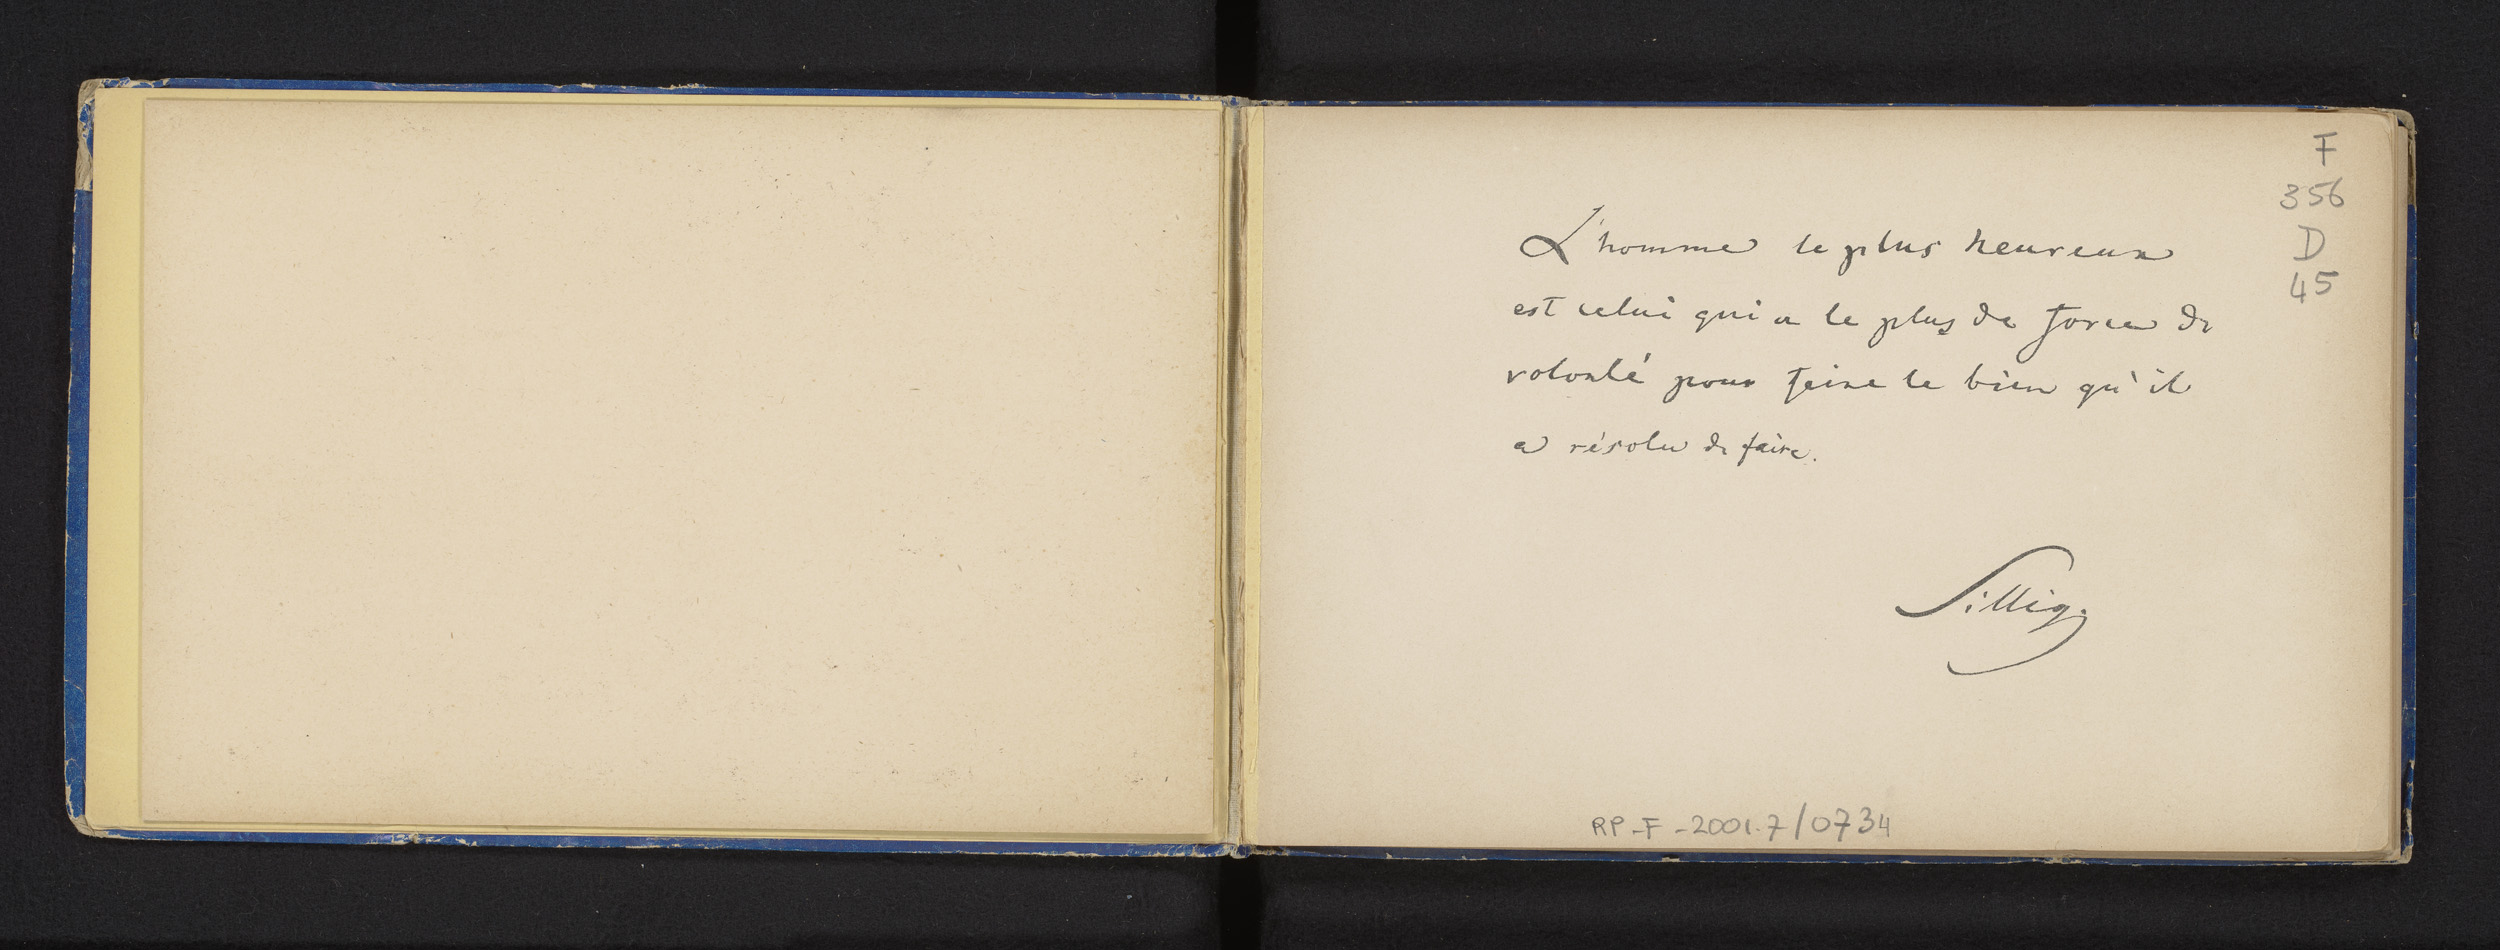 F
356
D
45
L'homme le plus heureux
est celui qui a le plus de force de
volonté pour faire le bien qu'il
a résolu de faire.
Sillig.
RP-F-2001.7/0734